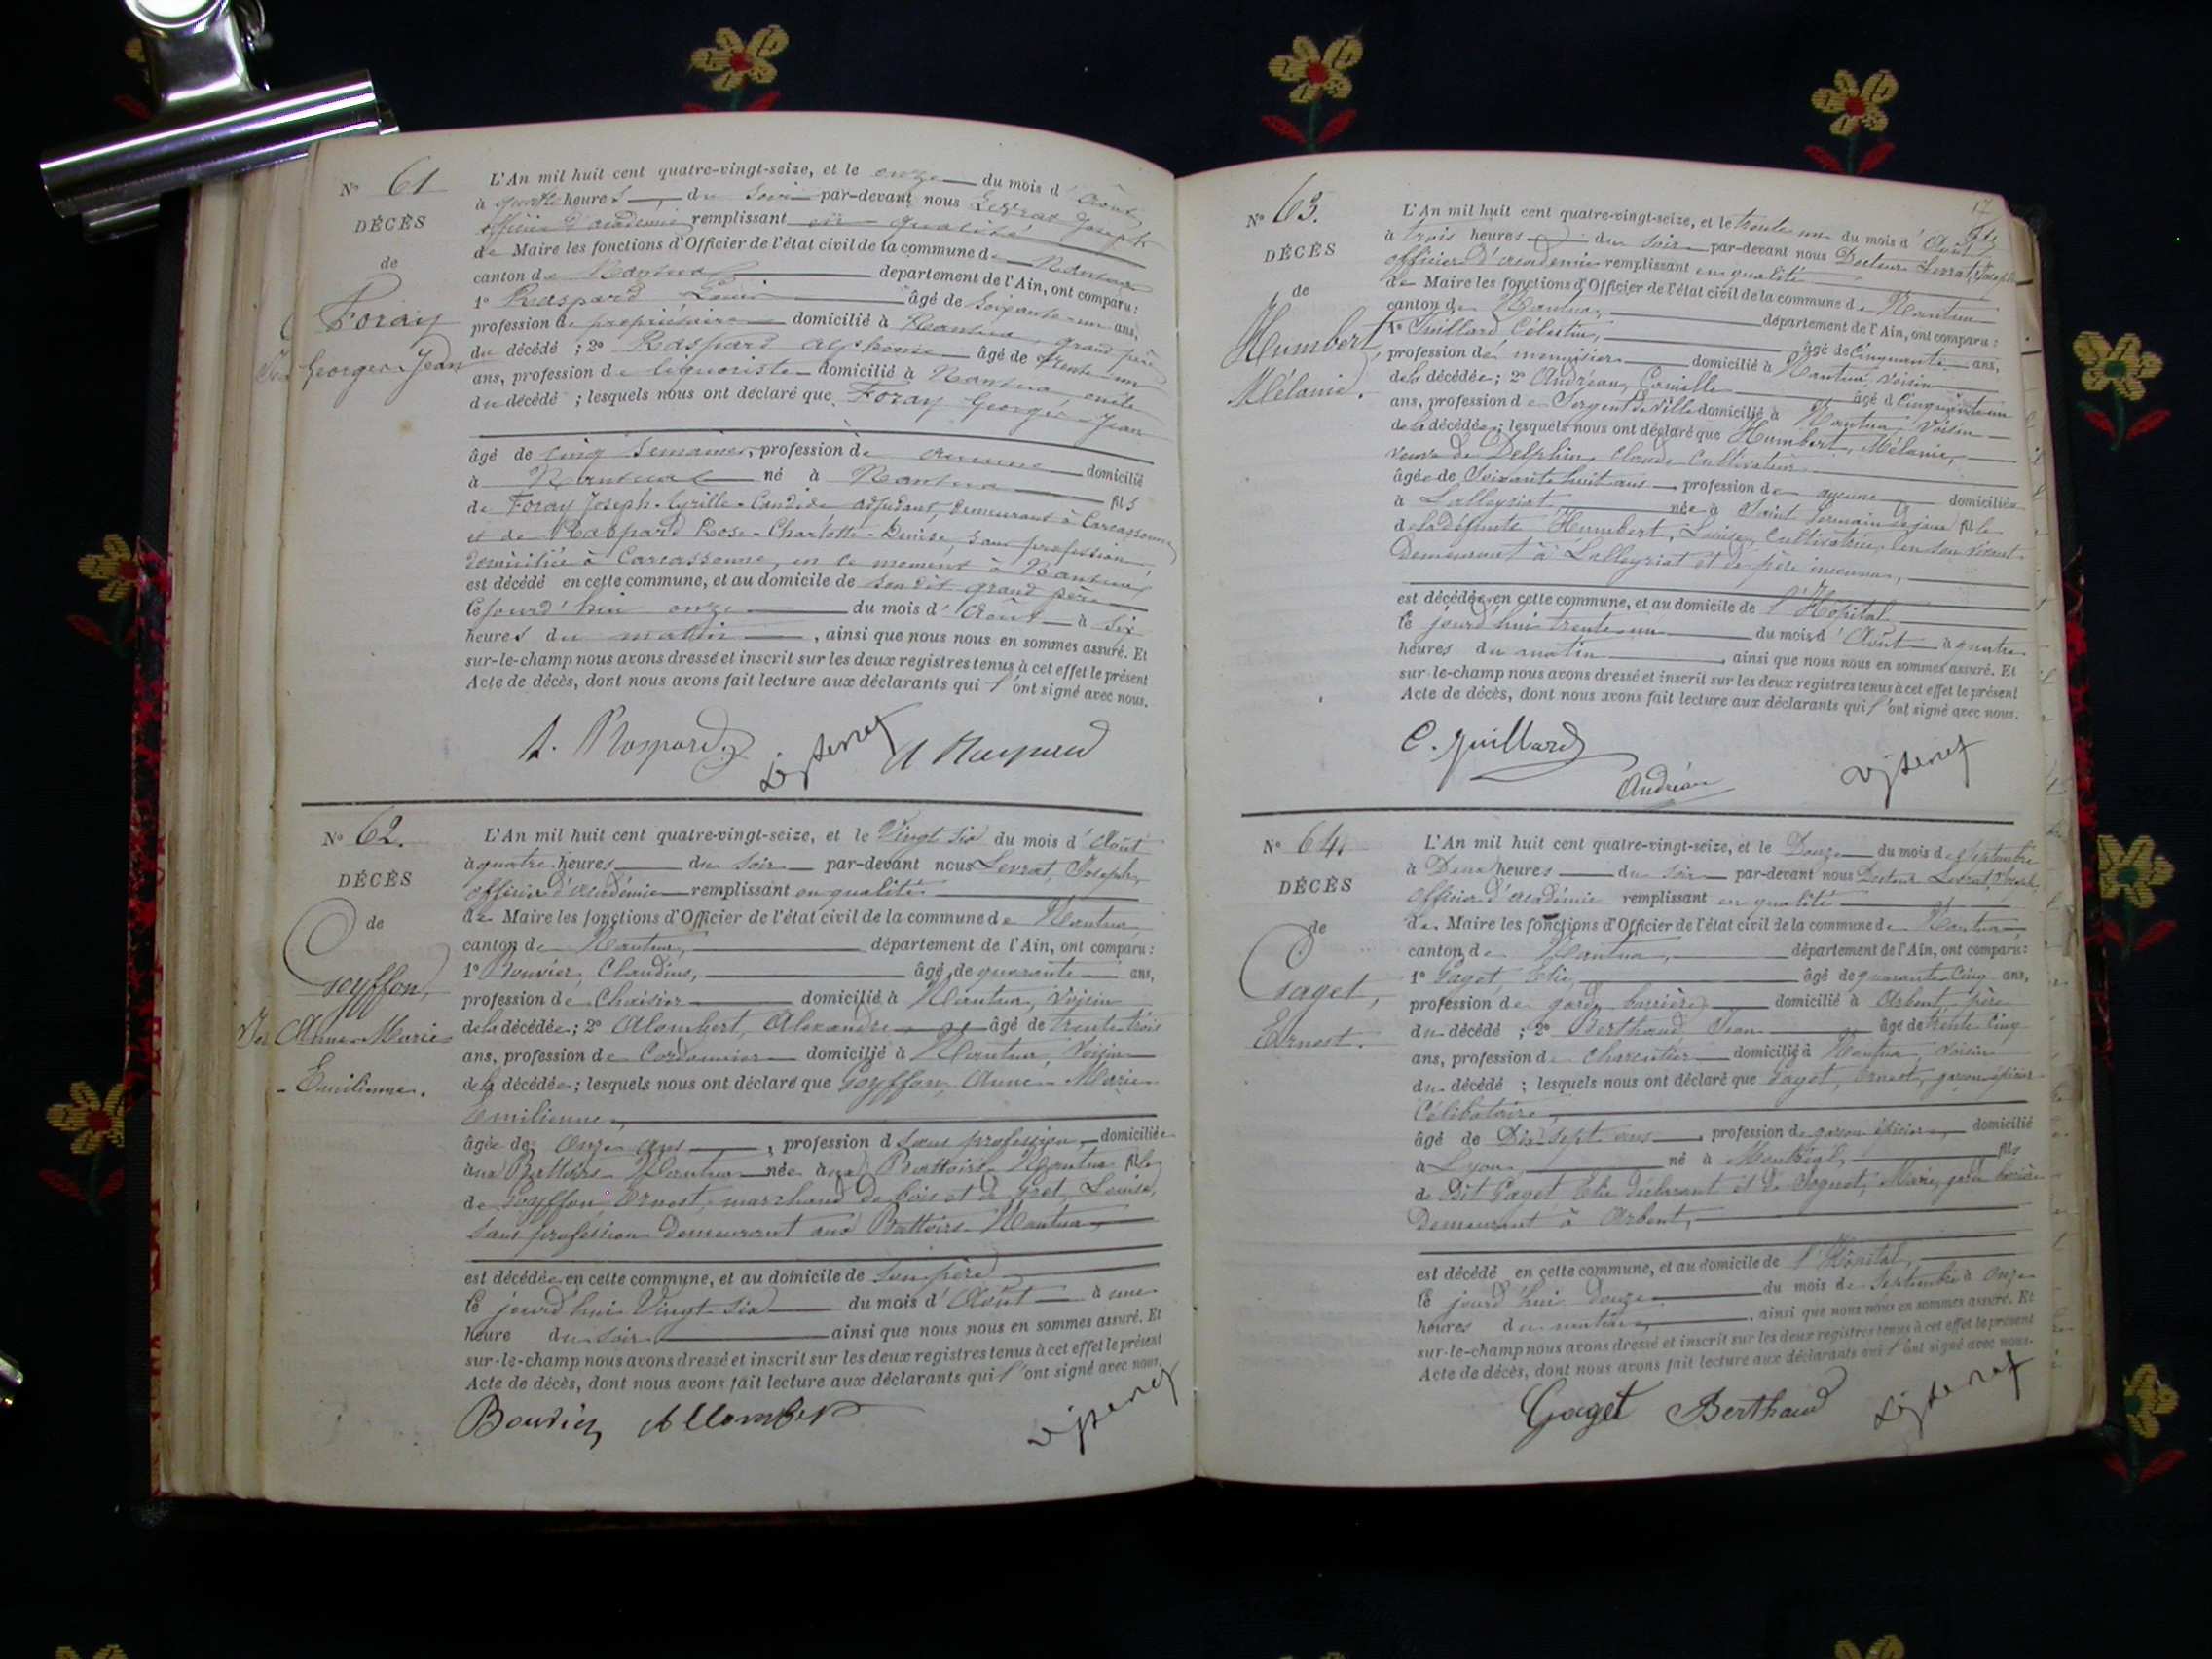 N° 61
DÉCÈS
de
Foray
Georges-Jean
L'An mil huit cent quatre-vingt-seize, et le onze du mois d'Août
à quatre heures du soir par-devant nous Levrat Joseph
officier d'académie remplissant en qualité
de Maire les fonctions d'Officier de l'état civil de la commune de Nantua
canton de Nantua département de l'Ain, ont comparu:
1° Raspard Louis âgé de soixante-un ans,
profession de propriétaire domicilié à Nantua, grand père
du décédé ; 2° Raspard Alphonse âgé de trente-un
ans, profession de liquoriste domicilié à Nantua, oncle
du décédé ; lesquels nous ont déclaré que Foray Georges-Jean
âgé de cinq semaines, profession de aucune domicilié
à Nantua né à Nantua fils
de Foray Joseph-Cyrille-Candide adjudant, demeurant à Carcassonne
et de Raspard Rose-Charlotte-Denise, sans profession,
domiciliée à Carcassonne, en ce moment à Nantua
est décédé en cette commune, et au domicile de son dit grand père
le jourd'hui onze du mois d'Août à six
heures du matin, ainsi que nous nous en sommes assuré. Et
sur-le-champ nous avons dressé et inscrit sur les deux registres tenus à cet effet le présent
Acte de décès, dont nous avons fait lecture aux déclarants qui l'ont signé avec nous.
L. Raspard A Raspard
N° 62.
DÉCÈS
de
Goyffon,
Anne-Marie
-Emilienne.
L'An mil huit cent quatre-vingt-seize, et le Vingt six du mois d'Août
à quatre heures du soir par-devant nous Levrat, Joseph,
officier d'académie remplissant en qualité
de Maire les fonctions d'Officier de l'état civil de la commune de Nantua
canton de Nantua, département de l'Ain, ont comparu:
1° Bouvier, Claudius, âgé de quarante ans,
profession de Chaisier domicilié à Nantua, voisin
de la décédée; 2° Alombert, Alexandre âgé de trente trois
ans, profession de Cordonnier domicilié à Nantua, voisin
de la décédée; lesquels nous ont déclaré que Goyffon, Anne-Marie
Emilienne,
âgée de onze ans, profession d sans profession, domiciliée
aux Battoirs Nantua née aux Battoirs Nantua fille
de Goyffon Ernest, marchand de bois et de Gret, Louise,
sans profession demeurant aux Battoirs-Nantua,
est décédée en cette commune, et au domicile de son père
le jourd'hui Vingt six du mois d'Août à une
heure du soir ainsi que nous nous en sommes assuré. Et
sur-le-champ nous avons dressé et inscrit sur les deux registres tenus à cet effet le présent
Acte de décès, dont nous avons fait lecture aux déclarants qui l'ont signé avec nous.
Bouvier Allombert
17
N° 63.
DÉCÈS
de
Humbert,
Mélanie.
L'An mil huit cent quatre-vingt-seize, et le trente un du mois d'Août
à trois heures du soir par-devant nous Docteur Levrat, Joseph
officier d'académie remplissant en qualité
de Maire les fonctions d'Officier de l'état civil de la commune de Nantua
canton de Nantua, département de l'Ain, ont comparu:
1° Juillard Célestin, âgé de Cinquante ans,
profession de menuisier domicilié à Nantua, voisin
de la décédée; 2° Andréan, Camille âgé de Cinquante un
ans, profession de Sergent de ville domicilié à Nantua, voisin
de la décédée; lesquels nous ont déclaré que Humbert, Mélanie,
veuve de Delphin, Claude Cultivateur
âgée de Soixante huit ans profession de aucune domiciliée
à Lalleyriat née à Saint Germain de joux fille
de la défunte Humbert, Louise, Cultivatrice en son vivant
demeurant à Lalleyriat et de père inconnu,
est décédée en cette commune, et au domicile de l'Hôpital
le jourd'hui trente un du mois d'Août à quatre
heures du matin, ainsi que nous nous en sommes assuré. Et
sur-le-champ nous avons dressé et inscrit sur les deux registres tenus à cet effet le présent
Acte de décès, dont nous avons fait lecture aux déclarants qui l'ont signé avec nous.
C. Juillard
Andréan
N° 64.
DÉCÈS
de
Gaget,
Ernest.
L'An mil huit cent quatre-vingt-seize, et le Douze du mois de Septembre
à Deux heures du soir par-devant nous Docteur Levrat, Joseph,
officier d'académie remplissant en qualité
de Maire les fonctions d'Officier de l'état civil de la commune de Nantua
canton de Nantua, département de l'Ain, ont comparu:
1° Gaget, Elie, âgé de quarante Cinq ans,
profession de garde barrière domicilié à Arbent, père
du décédé ; 2° Berthaud Jean âgé de trente Cinq
ans, profession de Charcutier domicilié à Nantua, voisin
du décédé ; lesquels nous ont déclaré que Gaget, Ernest, garçon épicier
Célibataire,
âgé de Dix sept ans, profession de garçon épicier domicilié
à Lyon, né à Montréal, fils
de Dit Gaget Elie déclarant et de Marie, garde barrière
Demeurant à Arbent,
est décédé en cette commune, et au domicile de l'Hôpital,
le jourd'hui douze du mois de Septembre à onze
heures du matin, ainsi que nous nous en sommes assuré. Et
sur-le-champ nous avons dressé et inscrit sur les deux registres tenus à cet effet le présent
Acte de décès, dont nous avons fait lecture aux déclarants qui l'ont signé avec nous.
Gaget Berthaud